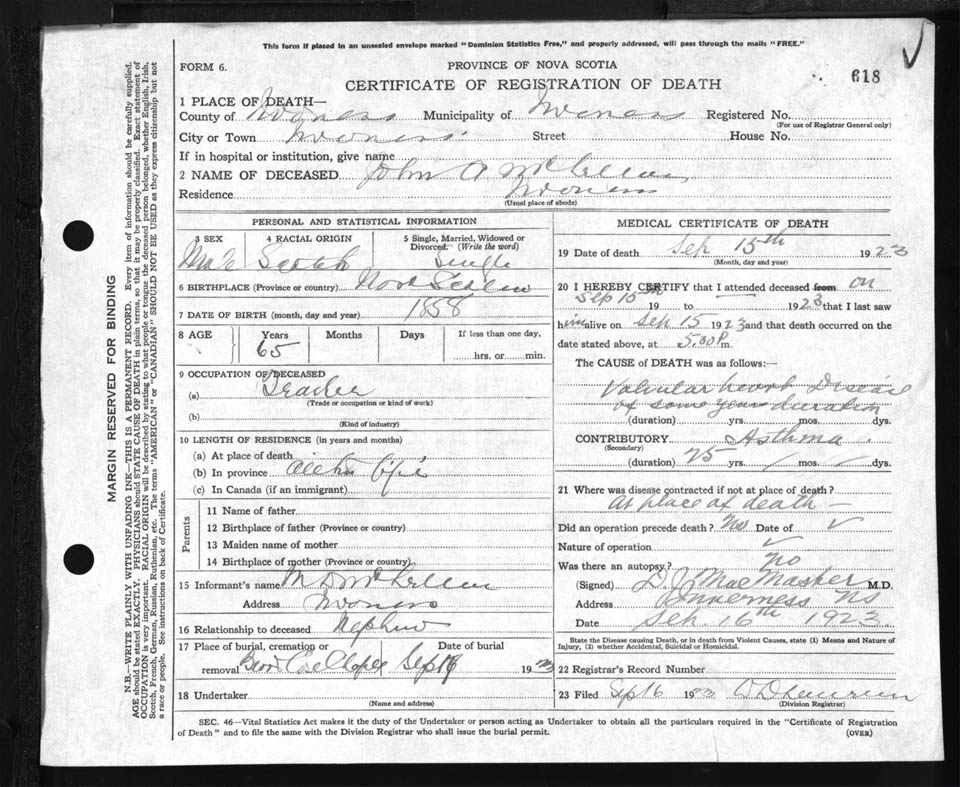 This form if placed in an unsealed envelope marked "Dominion Statistics Free," and properly addressed, will pass through the mails "FREE."
FORM 6.
PROVINCE OF NOVA SCOTIA
618
CERTIFICATE OF REGISTRATION OF DEATH
1 PLACE OF DEATH—
County of Inverness Municipality of Inverness Registered No.
(For use of Registrar General only)
City or Town Inverness Street House No.
If in hospital or institution, give name
2 NAME OF DECEASED John A McLellan
Residence Inverness
(Usual place of abode)
PERSONAL AND STATISTICAL INFORMATION
3 SEX 4 RACIAL ORIGIN 5 Single, Married, Widowed or Divorced. (Write the word)
Male Scotch Single
6 BIRTHPLACE (Province or country) Nova Scotia
7 DATE OF BIRTH (month, day and year) 1858
8 AGE Years Months Days If less than one day,
65 hrs. or min.
9 OCCUPATION OF DECEASED
(a)
(Trade or occupation or kind of work)
(b)
(Kind of industry)
10 LENGTH OF RESIDENCE (in years and months)
(a) At place of death
(b) In province life
(c) In Canada (if an immigrant)
Parents
11 Name of father
12 Birthplace of father (Province or country)
13 Maiden name of mother
14 Birthplace of mother (Province or country)
15 Informant's name McLellan
Address Inverness
16 Relationship to deceased Nephew
17 Place of burial, cremation or removal Date of burial
Sep 1923
18 Undertaker
(Name and address)
MEDICAL CERTIFICATE OF DEATH
19 Date of death Sep 15th 1923
(Month, day and year)
20 I HEREBY CERTIFY that I attended deceased from on
Sep 15th 19 to 1923 that I last saw
him alive on Sep 15 1923 and that death occurred on
date stated above, at 5.30 P. m.
The CAUSE of DEATH was as follows:—
Valvular heart Disease
of some years duration
(duration) yrs. mos. dys.
CONTRIBUTORY Asthma
(Secondary)
(duration) 25 yrs. / mos. / dys.
21 Where was disease contracted if not at place of death?
At place of death —
Did an operation precede death? No Date of ✓
Nature of operation ✓
Was there an autopsy? no
(Signed) D J MacMaster M.D.
Address Inverness NS
Date Sep. 16th 1923
State the Disease causing Death, or in death from Violent Causes, state (1) Means and Nature of Injury, (2) whether Accidental, Suicidal or Homicidal.
22 Registrar's Record Number
23 Filed Sep 16 1923
(Division Registrar)
SEC. 46—Vital Statistics Act makes it the duty of the Undertaker or person acting as Undertaker to obtain all the particulars required in the "Certificate of Registration
of Death" and to file the same with the Division Registrar who shall issue the burial permit.
(OVER)
MARGIN RESERVED FOR BINDING
N.B.—WRITE PLAINLY WITH UNFADING INK—THIS IS A PERMANENT RECORD. Every item of information should be carefully supplied.
AGE should be stated EXACTLY. PHYSICIANS should STATE CAUSE OF DEATH in plain terms, so that it may be properly classified. Exact statement of
OCCUPATION is very important. RACIAL ORIGIN will be described by stating to what people or tongue the deceased person belonged, whether English, Irish,
Scotch, French, German, Russian, Ruthenian, etc. The terms "AMERICAN" or "CANADIAN" SHOULD NOT BE USED as they express citizenship but not
a race or people. See instructions on back of Certificate.